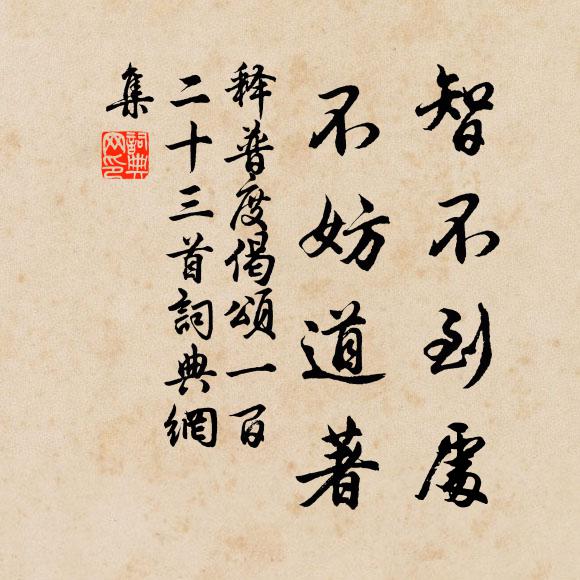 智不到處
不妨道著
释普度偈頌一百
二十三首詞典網
集
詞典
网印